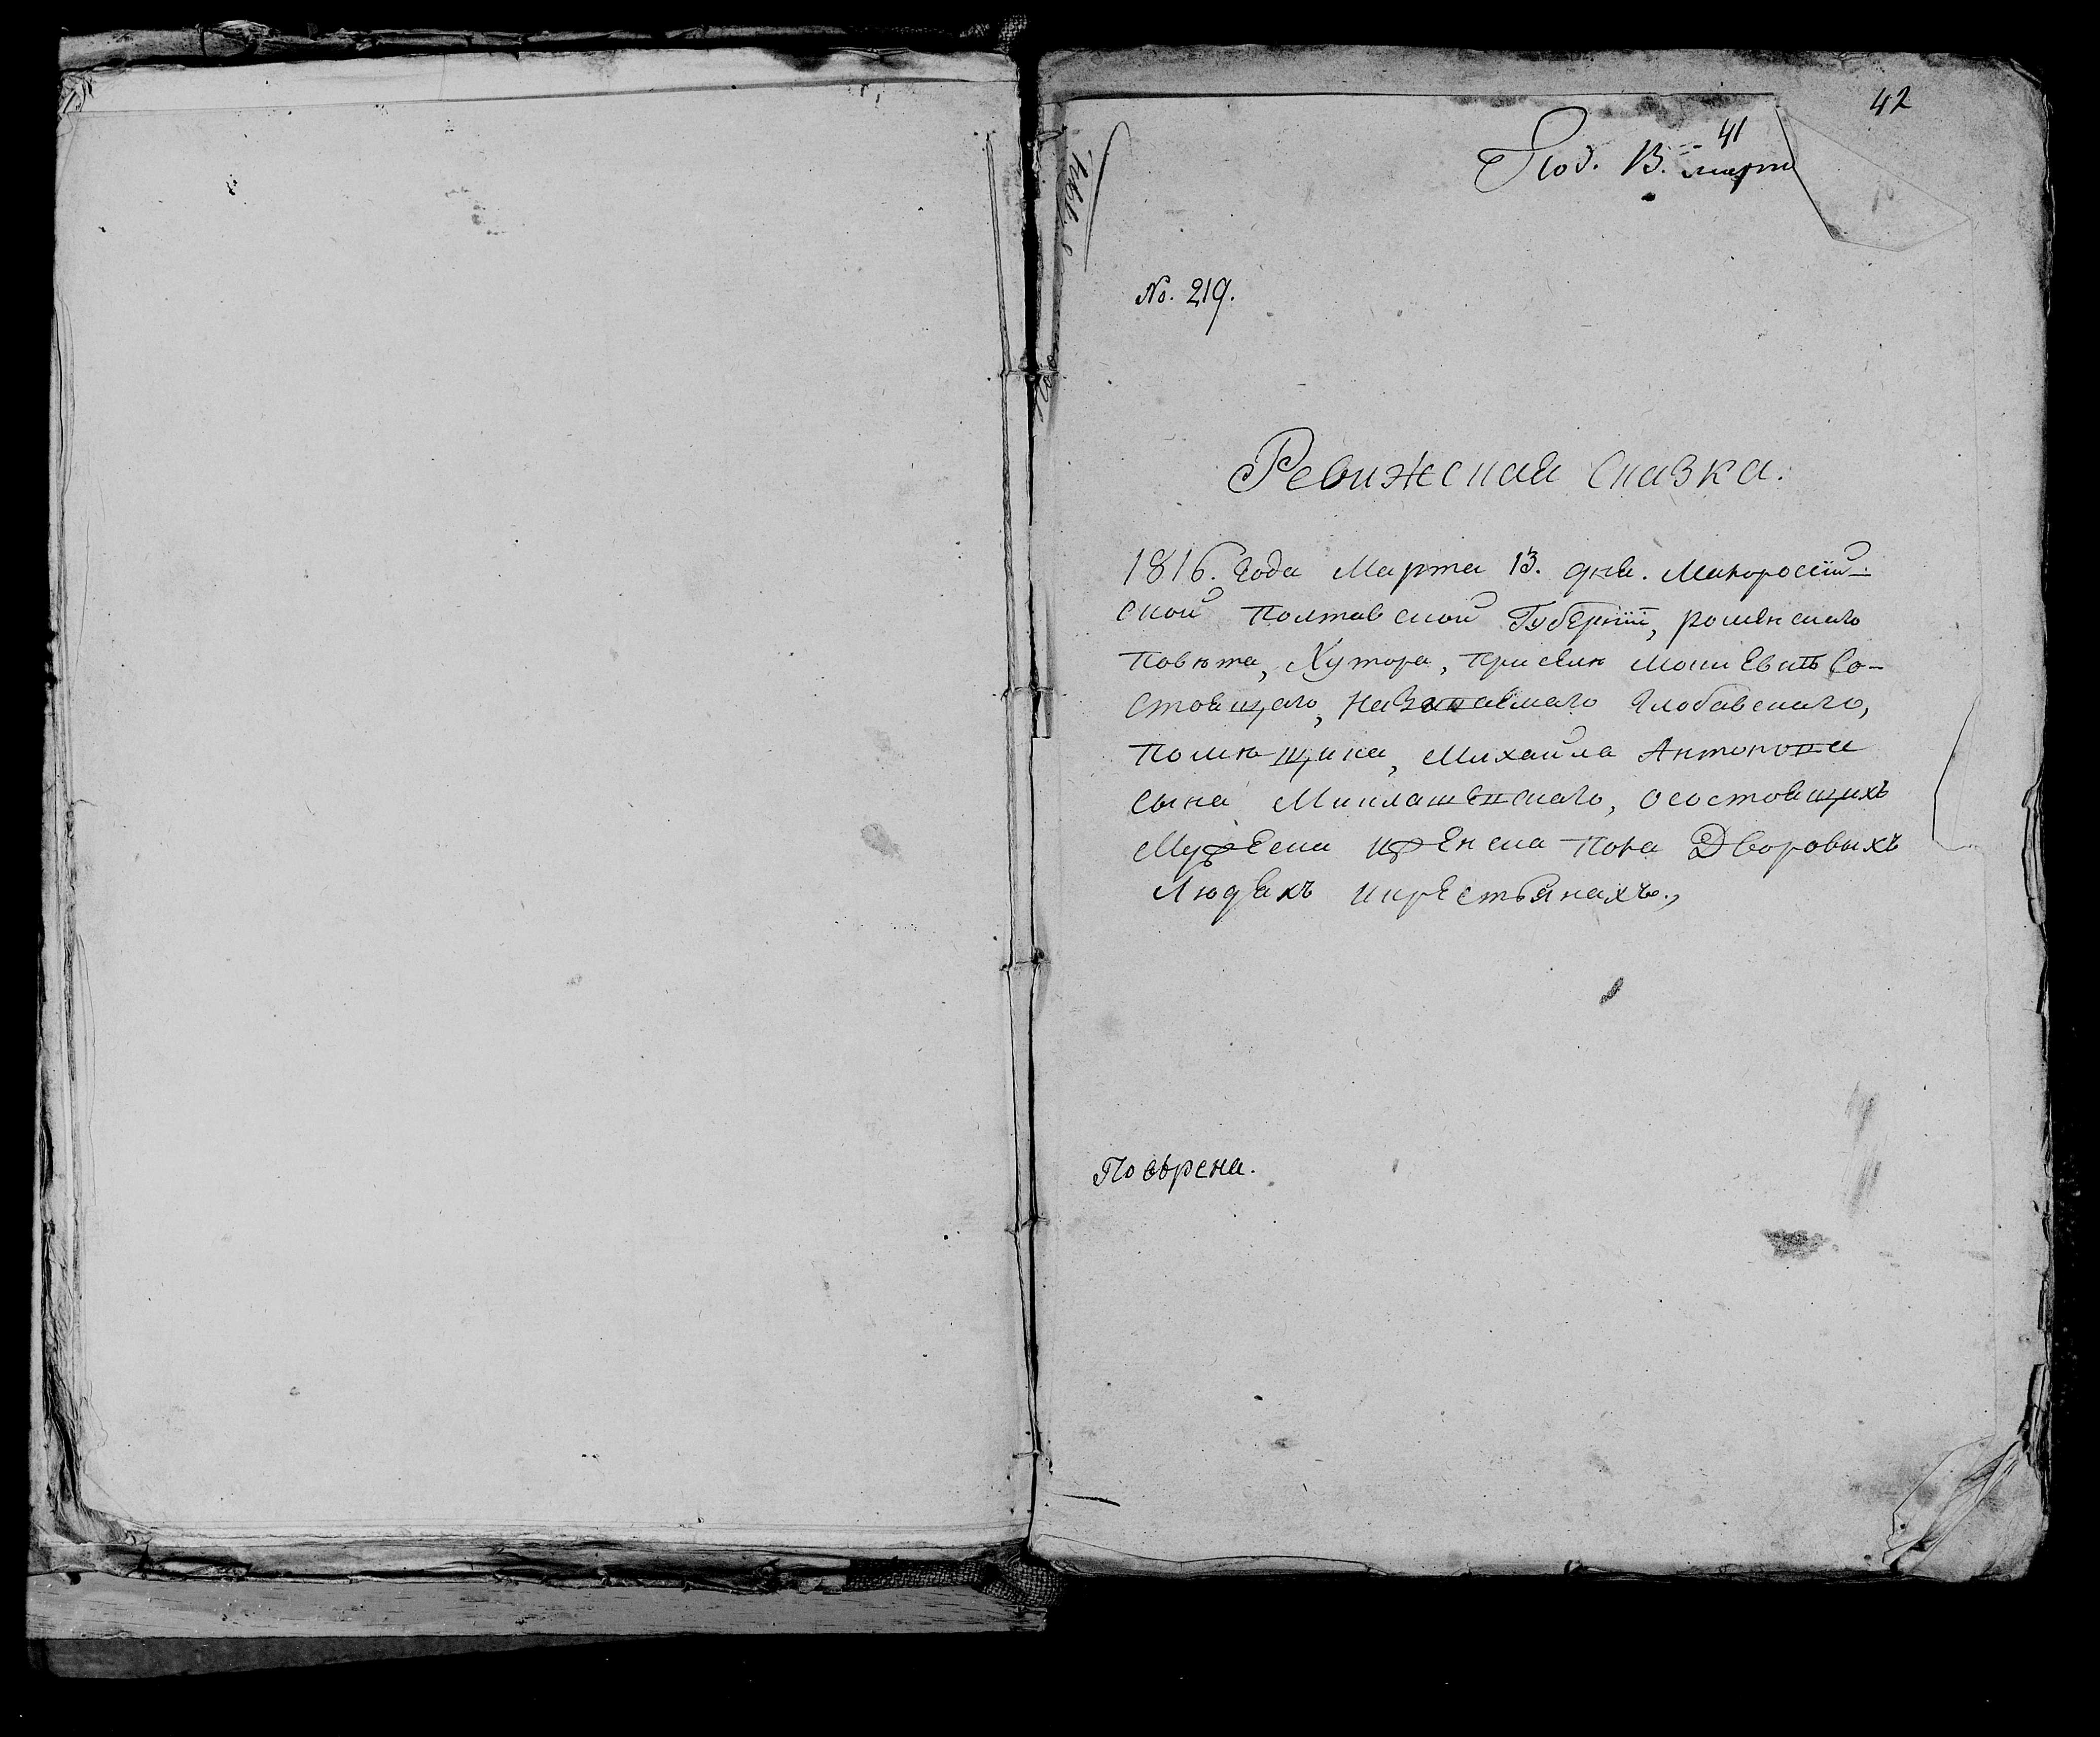 42
41
Под. 13. марта
No. 219.
Ревижская сказка.
1816. года Марта 13. дня. Малоросій-
ской полтавской Губерніи, роменскаго
повѣта, Хутора, при селѣ со-
стоящаго, называемаго Глобавскаго,
помѣщика, Михайла Антонова
сына Миклашевскаго, о состоящихъ
Мужеска и женска пола Дворовыхъ
Людяхъ и крестьянахъ.,
Повѣрена.